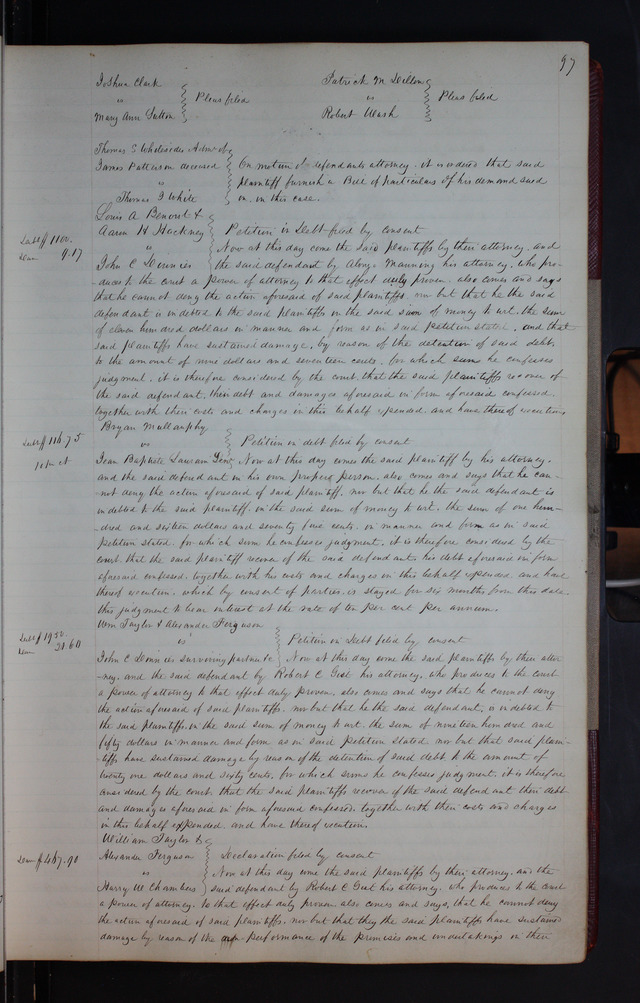 97
Joshua Clark
vs } Pleas filed
Mary Ann Sutton
Patrick M Dillon
vs } Pleas filed
Robert Walsh
Thomas S Whitesides Admr of
James Patterson deceased
vs
Thomas J White
On motion of defendants attorney. it is ordered that said
plaintiff furnish a Bill of particulars of his demand sued
on in this case.
Louis A Benoist &
Aaron H Hackney
vs
John C Dennies
Debt $1100.
Dam 9.17
Petition in Debt filed by consent
Now at this day come the said plaintiffs by their attorney. and
the said defendant by Manning his attorney. who pro-
duces to the court a power of attorney to that effect duly proven. also comes and says
that he cannot deny the action aforesaid of said plaintiffs. nor but that he the said
defendant is indebted to the said plaintiffs in the said sum of money to wit. the sum
of eleven hundred dollars in manner and form as in said petition stated. and that
said plaintiffs have sustained damage. by reason of the detention of said debt.
to the amount of nine dollars and seventeen cents. for which sum he confesses
judgment. it is therefore considered by the court. that the said plaintiffs recover of
the said defendant. their debt and damages aforesaid in form aforesaid confessed.
together with their costs and charges in this behalf expended. and have thereof execution.
Bryan Mullanphy
vs
Jean Baptiste
Debt $116.75
10 pr ct
Petition in debt filed by consent
Now at this day comes the said plaintiff by his attorney.
and the said defendant in his own proper person. also comes and says that he can-
not deny the action aforesaid of said plaintiff. nor but that he the said defendant is
indebted to the said plaintiff. in the said sum of money to wit. the sum of one hun-
-dred and sixteen dollars and seventy five cents. in manner and form as in said
petition stated. for which sum he confesses judgment. it is therefore considered by the
court. that the said plaintiff recover of the said defendant. his debt aforesaid in form
aforesaid confessed. together with his costs and charges in this behalf expended. and have
thereof execution. which by consent of parties. is stayed for six months from this date
this judgment to bear interest at the rate of ten per cent per annum.
Wm Taylor & Alexander Ferguson
vs
John C Dennies surviving partner &c
Debt $1950.
Dam 21.60
Petition in Debt filed by consent
Now at this day come the said plaintiffs by their attor
-ney. and the said defendant by Robert C Gist his attorney. who produces to the court
a power of attorney to that effect duly proven. also comes and says that he cannot deny
the action aforesaid of said plaintiffs. nor but that he the said defendant. is indebted to
the said plaintiffs. in the said sum of money to wit the sum of nineteen hundred and
fifty dollars in manner and form as in said petition stated nor but that said plain-
-tiffs have sustained damage by reason of the detention of said debt to the amount of
twenty one dollars and sixty cents. for which sums he confesses judgment. it is therefore
considered by the court that the said plaintiffs recover of the said defendant their debt
and damages aforesaid in form aforesaid confessed. together with their costs and charges
in this behalf expended. and have thereof execution.
William Taylor &
Alexander Ferguson
vs
Harry W Chambers
Dam $467.90
Declaration filed by consent
Now at this day come the said plaintiffs by their attorney. and the
said defendant by Robert C Gist his attorney. who produces to the court
a power of attorney. to that effect duly proven also comes and says, that he cannot deny
the action aforesaid of said plaintiffs. nor but that they the said plaintiffs have sustained
damage by reason of the non-performance of the promises and undertakings in their